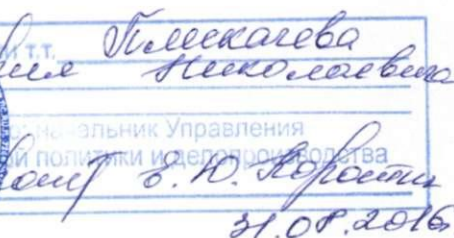 и т.т. Плискачева
Николаевича
начальник Управления
й политики и делопроизводства
Е. Ю. Коротин
31.08.2016